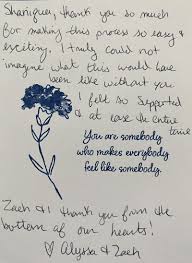 Shanique, thank you so much
for making this process so easy &
exciting. I truly could not
imagine what this would have
been like without you
I felt so supported &
at ease the entire
time
You are somebody
who makes everybody
feel like somebody.
Zach & I thank you from the
bottom of our hearts!
♡ Alyssa & Zach